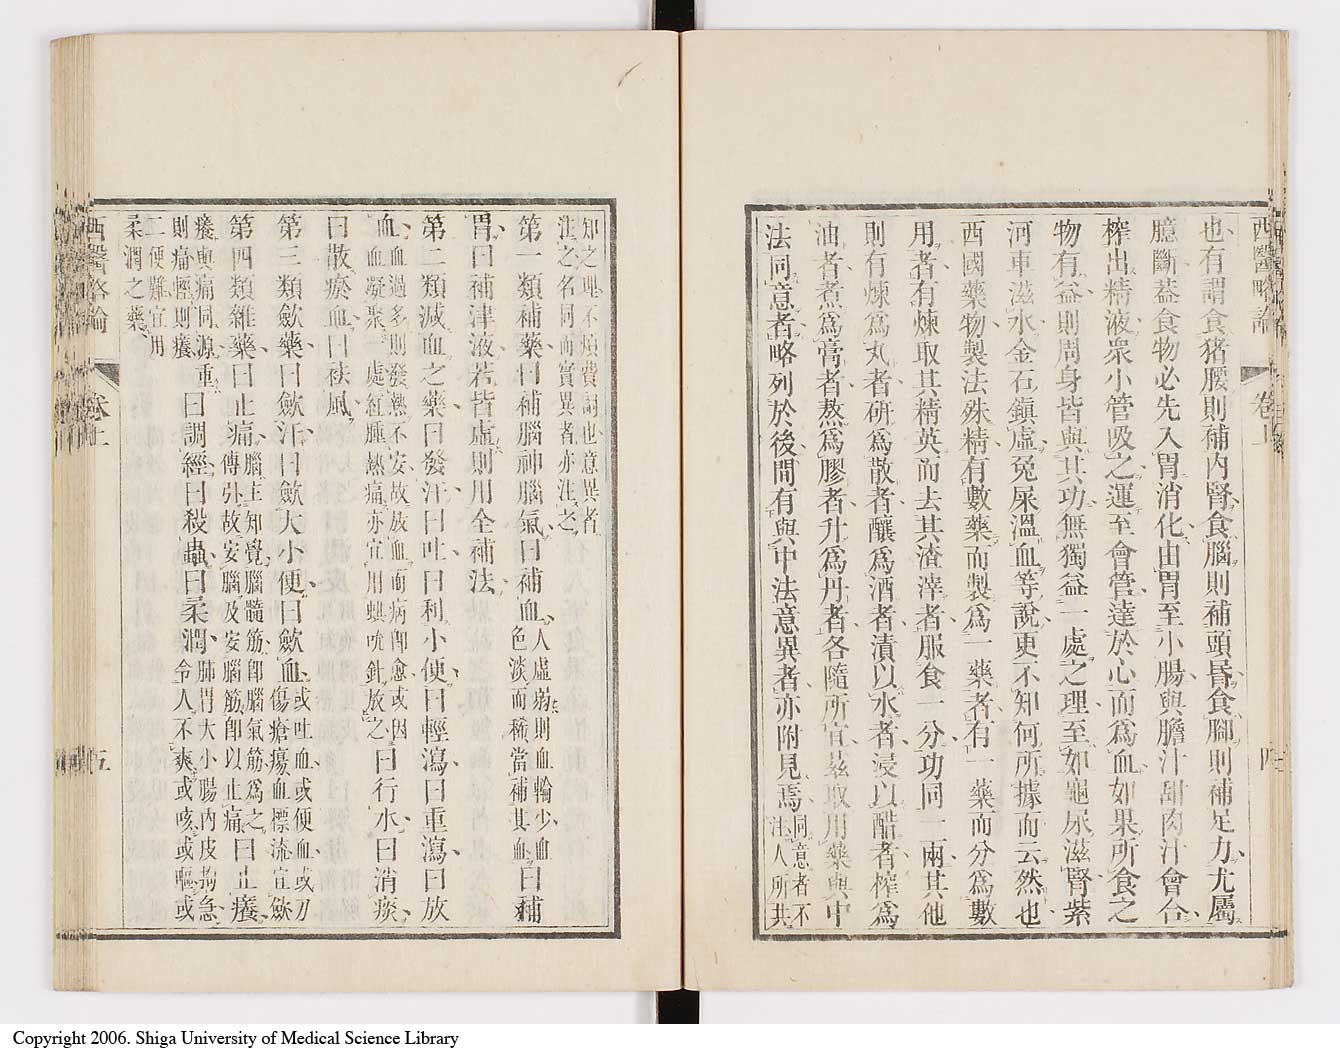 西醫略論 卷上 四
也有謂食猪腰則補内腎食腦則補頭昏食脚則補足力尤屬
臆斷葢食物必先入胃消化由胃至小腸與膽汁甜肉汁會合
榨出精液衆小管吸之運至會管達於心而爲血如果所食之
物有益則周身皆與其功無獨益一處之理至如龜尿滋腎紫
河車滋水金石鎮虛兔屎溫血等說更不知何所據而云然也
西國藥物製法殊精有數藥而製爲一藥者有一藥而分爲數
用者有煉取其精英而去其渣滓者服食一分功同一兩其他
則有煉爲丸者研爲散者釀爲酒者漬以水者浸以醋者榨爲
油者煮爲膏者熬爲膠者升爲丹者各隨所宜茲取用藥與中
法同意者略列於後間有與中法意異者亦附見焉同意者不注人所共
知之理不煩費詞也意異者注之名同而實異者亦注之
第一類補藥曰補腦神腦氣曰補血人虛弱則血輪少血色淡而稀當補其血曰補
胃曰補津液若皆虛則用全補法
第二類減血之藥曰發汗曰吐曰利小便曰輕瀉曰重瀉曰放
血血過多則發熱不安故放血而病卽愈或因血凝聚一處紅腫熱痛亦宜用蜞吮針放之曰行水曰消痰
曰散瘀血曰祛風
第三類歛藥曰歛汗曰歛大小便曰歛血或吐血或便血或刀傷瘡瘍血標流宜歛
第四類雜藥曰止痛腦主知覺腦髓筋卽腦氣筋爲之傳引故安腦及安腦筋卽以止痛曰止癢
癢與痛同源重則痛輕則癢曰調經曰殺蟲曰柔潤肺胃大小腸内皮拘急令人不爽或咳或嘔或
二便難宜用柔潤之藥
西醫略論 卷上 五
Copyright 2006. Shiga University of Medical Science Library